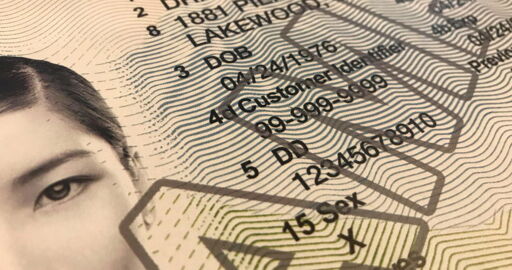 2
8 1881 PIE
LAKEWOOD,
3 DOB
04/24/1976
4d Customer Identifier
99-999-9999
5 DD
12345678910
15 Sex
X
4b Exp
04/26/
Previou